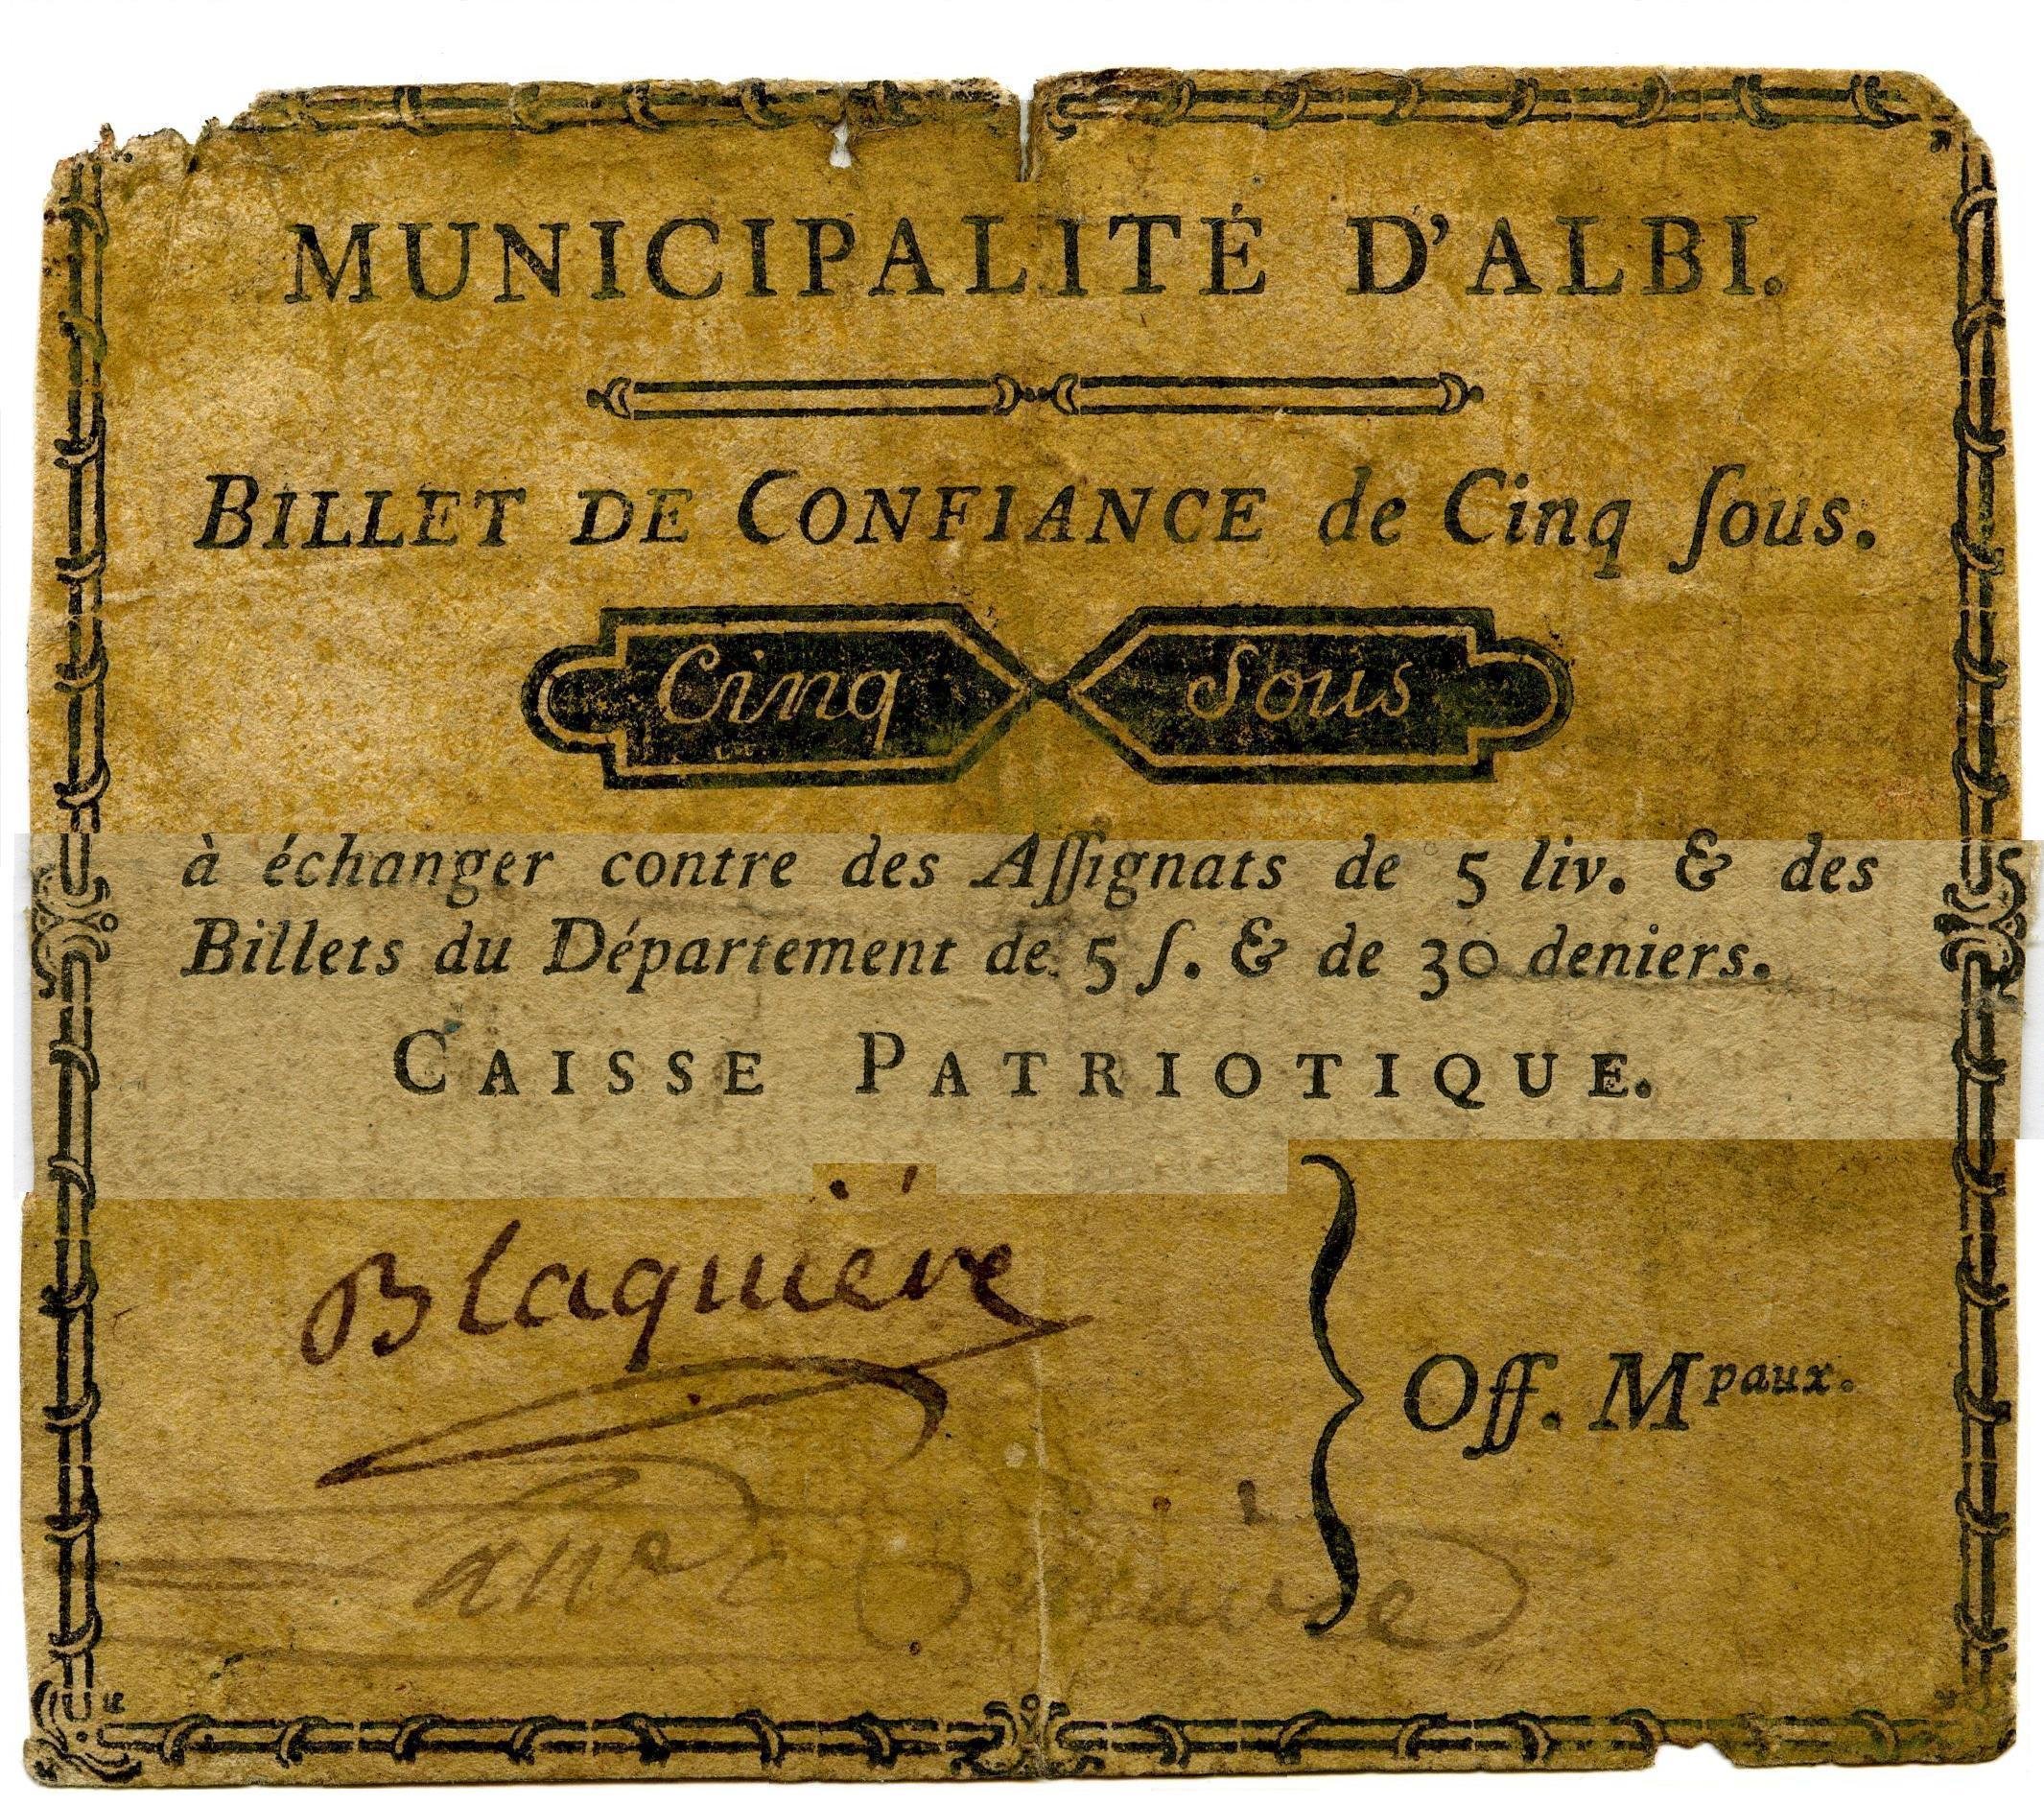 MUNICIPALITÉ D'ALBI.
BILLET DE CONFIANCE de Cinq ſous.
Cinq Sous
à échanger contre des Aſſignats de 5 liv. & des
Billets du Département de 5 ſ. & de 30 deniers.
CAISSE PATRIOTIQUE.
Blaquiére
Off. Mpaux.